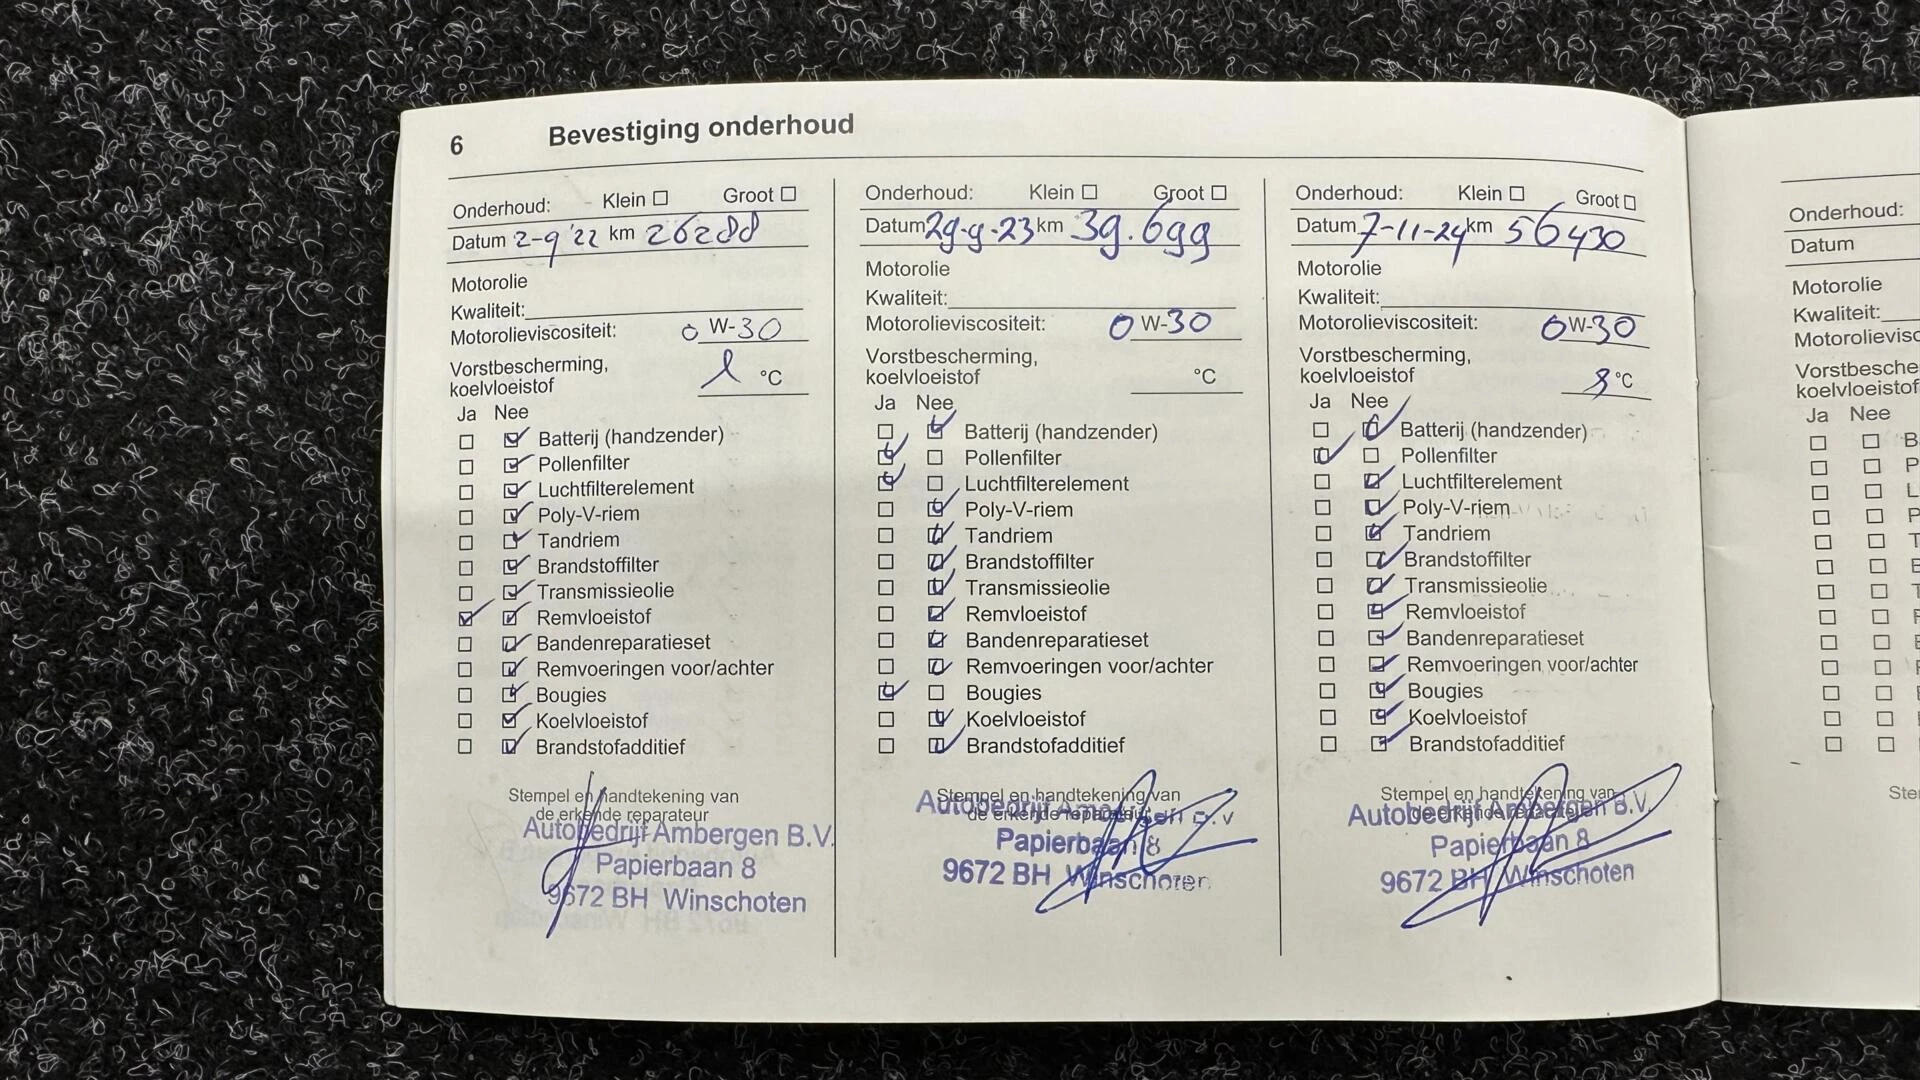 6 Bevestiging onderhoud
Onderhoud: Klein Groot
Datum 2-9'22 km 26288
Motorolie
Kwaliteit:
Motorolieviscositeit: 0 W-30
Vorstbescherming,
koelvloeistof °C
Ja Nee
Batterij (handzender)
Pollenfilter
Luchtfilterelement
Poly-V-riem
Tandriem
Brandstoffilter
Transmissieolie
Remvloeistof
Bandenreparatieset
Remvoeringen voor/achter
Bougies
Koelvloeistof
Brandstofadditief
Stempel en handtekening van
de erkende reparateur
Autobedrijf Ambergen B.V.
Papierbaan 8
9672 BH Winschoten
Onderhoud: Klein Groot
Datum 29-9-23 km 39.699
Motorolie
Kwaliteit:
Motorolieviscositeit: 0 W-30
Vorstbescherming,
koelvloeistof °C
Ja Nee
Batterij (handzender)
Pollenfilter
Luchtfilterelement
Poly-V-riem
Tandriem
Brandstoffilter
Transmissieolie
Remvloeistof
Bandenreparatieset
Remvoeringen voor/achter
Bougies
Koelvloeistof
Brandstofadditief
Stempel en handtekening van
de erkende reparateur
Autobedrijf Ambergen B.V
Papierbaan 8
9672 BH Winschoten
Onderhoud: Klein Groot
Datum 7-11-24 km 56430
Motorolie
Kwaliteit:
Motorolieviscositeit: 0 W-30
Vorstbescherming,
koelvloeistof °C
Ja Nee
Batterij (handzender)
Pollenfilter
Luchtfilterelement
Poly-V-riem
Tandriem
Brandstoffilter
Transmissieolie
Remvloeistof
Bandenreparatieset
Remvoeringen voor/achter
Bougies
Koelvloeistof
Brandstofadditief
Stempel en handtekening van
de erkende reparateur
Autobedrijf Ambergen B.V.
Papierbaan 8
9672 BH Winschoten
Onderhoud:
Datum
Motorolie
Kwaliteit:
Motorolievisc
Vorstbesche
koelvloeistof
Ja Nee
B
P
L
P
T
B
T
Ste